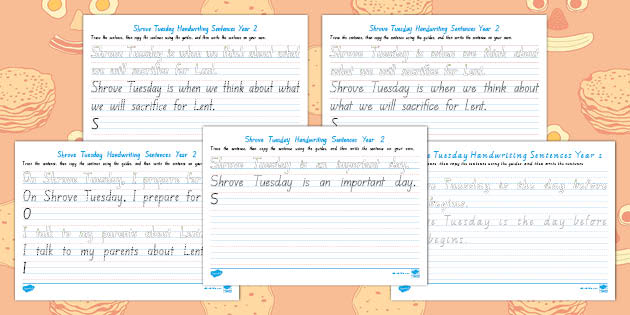 Shrove Tuesday Handwriting Sentences Year 2
Trace the sentence, then copy the sentence using the guides, and then write the sentence on your own.
Shrove Tuesday is when we think about what
we will sacrifice for Lent.
Shrove Tuesday is when we think about what
we will sacrifice for Lent.
S
Shrove Tuesday Handwriting Sentences Year 2
Trace the sentence, then copy the sentence using the guides, and then write the sentence on your own.
Shrove Tuesday is when we think about
what we will sacrifice for Lent.
Shrove Tuesday is when we think about
what we will sacrifice for Lent.
S
Shrove Tuesday Handwriting Sentences Year 2
Trace the sentence, then copy the sentence using the guides, and then write the sentence on your own
On Shrove Tuesday, I prepare for
On Shrove Tuesday, I prepare for
O
I talk to my parents about Lent
I talk to my parents about Lent
I
Shrove Tuesday Handwriting Sentences Year 2
Trace the sentence, then copy the sentence using the guides, and then write the sentence on your own.
Shrove Tuesday is an important day.
Shrove Tuesday is an important day.
S
Tuesday Handwriting Sentences Year 2
sentence, then copy the sentence using the guides, and then write the sentence
Tuesday is the day before
begins.
Tuesday is the day before
begins.